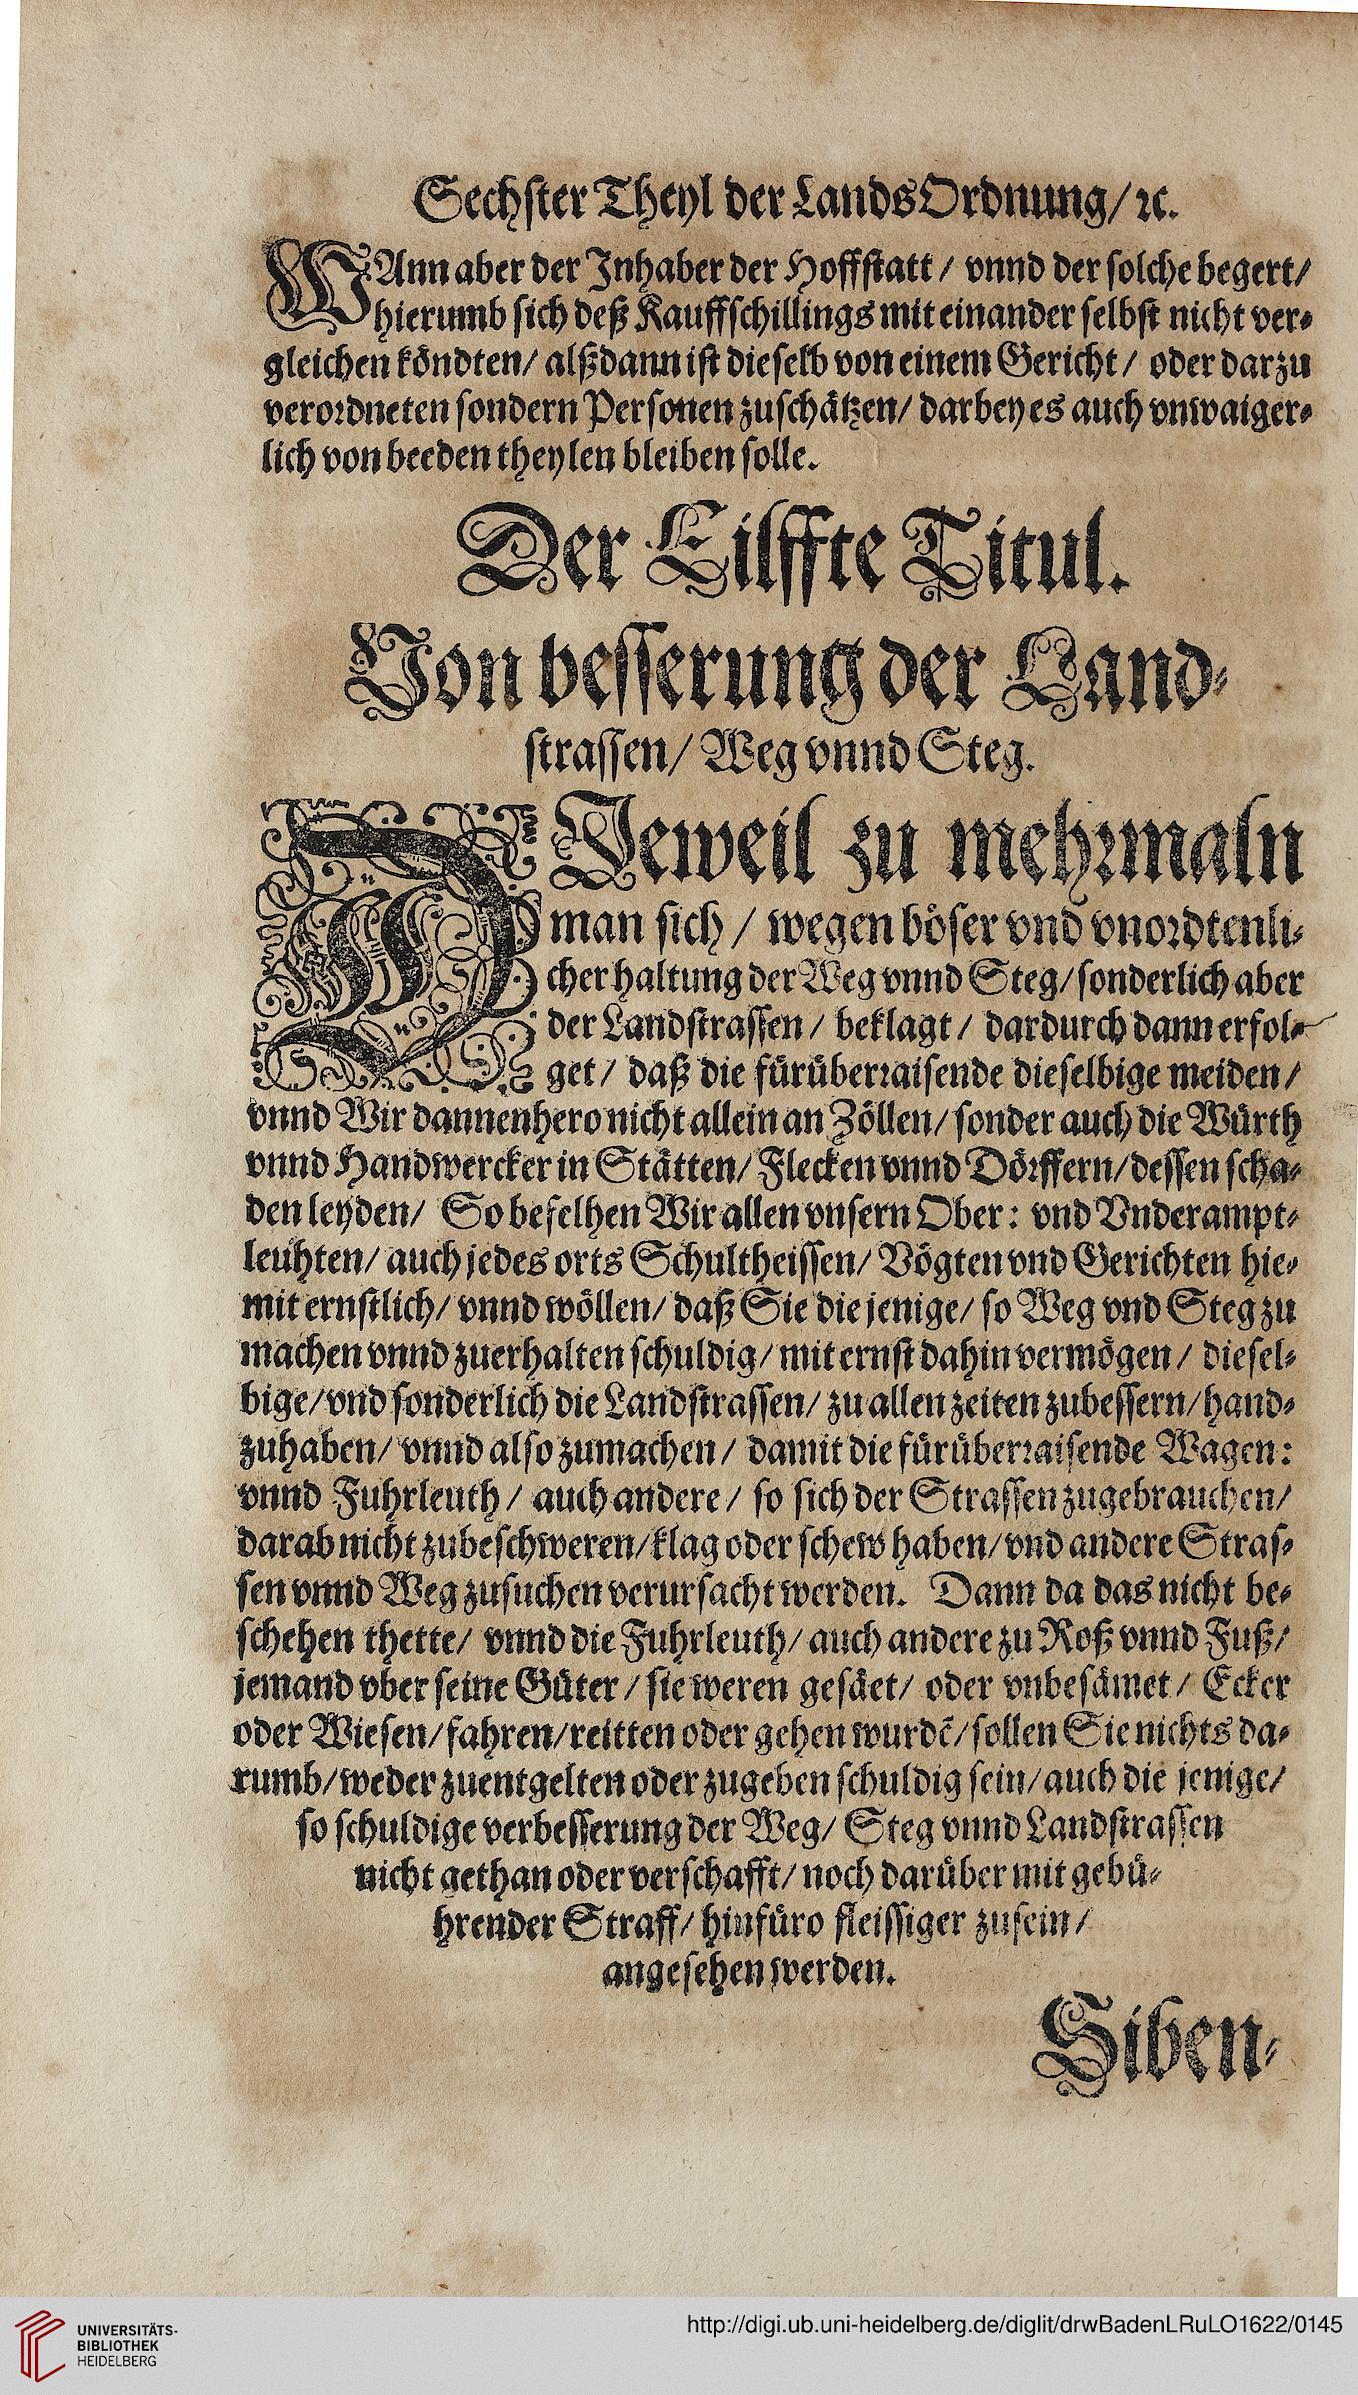 Sechster Theyl der LandsOrdnung/ ꝛc.
WAnn aber der Inhaber der Hoffstatt / vnnd der solche begert/
hierumb sich deß Kauffschillings mit einander selbst nicht ver-
gleichen köndten/ alßdann ist dieselb von einem Gericht / oder darzu
verordneten sondern Personen zuschätzen/ darbey es auch vnwaiger-
lich von beeden theylen bleiben solle.
Der Eilffte Titul.
Von besserung der Land-
strassen/ Weg vnnd Steg.
DIeweil zu mehrmaln
man sich / wegen böser vnd vnordtenli-
cher haltung der Weg vnnd Steg/ sonderlich aber
der Landstrassen / beklagt / dardurch dann erfol-
get / daß die fürüberraisende dieselbige meiden /
vnnd Wir dannenhero nicht allein an Zöllen/ sonder auch die Würth
vnnd Handwercker in Stätten/ Flecken vnnd Dörffern/ dessen scha-
den leyden/ So befelhen Wir allen vnsern Ober: vnd Vnderampt-
leuhten/ auch jedes orts Schultheissen/ Vögten vnd Gerichten hie-
mit ernstlich/ vnnd wöllen/ daß Sie die jenige/ so Weg vnd Steg zu
machen vnnd zuerhalten schuldig/ mit ernst dahin vermögen / diesel-
bige/ vnd sonderlich die Landstrassen/ zu allen zeiten zubessern/ hand-
zuhaben/ vnnd also zumachen / damit die fürüberraisende Wagen:
vnnd Fuhrleuth / auch andere / so sich der Strassen zugebrauchen/
darab nicht zubeschweren/ klag oder schew haben/ vnd andere Stras-
sen vnnd Weg zusuchen verursacht werden. Dann da das nicht be-
schehen thette/ vnnd die Fuhrleuth/ auch andere zu Roß vnnd Fuß/
jemand vber seine Güter / sie weren gesäet/ oder vnbesämet / Ecker
oder Wiesen/ fahren/ reitten oder gehen wurdẽ/ sollen Sie nichts da-
rumb/ weder zuentgelten oder zugeben schuldig sein/ auch die jenige/
so schuldige verbesserung der Weg/ Steg vnnd Landstrassen
nicht gethan oder verschafft/ noch darüber mit gebü-
hrender Straff/ hinfüro fleissiger zusein /
angesehen werden.
Siben-
UNIVERSITÄTS-
BIBLIOTHEK
HEIDELBERG
http://digi.ub.uni-heidelberg.de/diglit/drwBadenLRuLO1622/0145